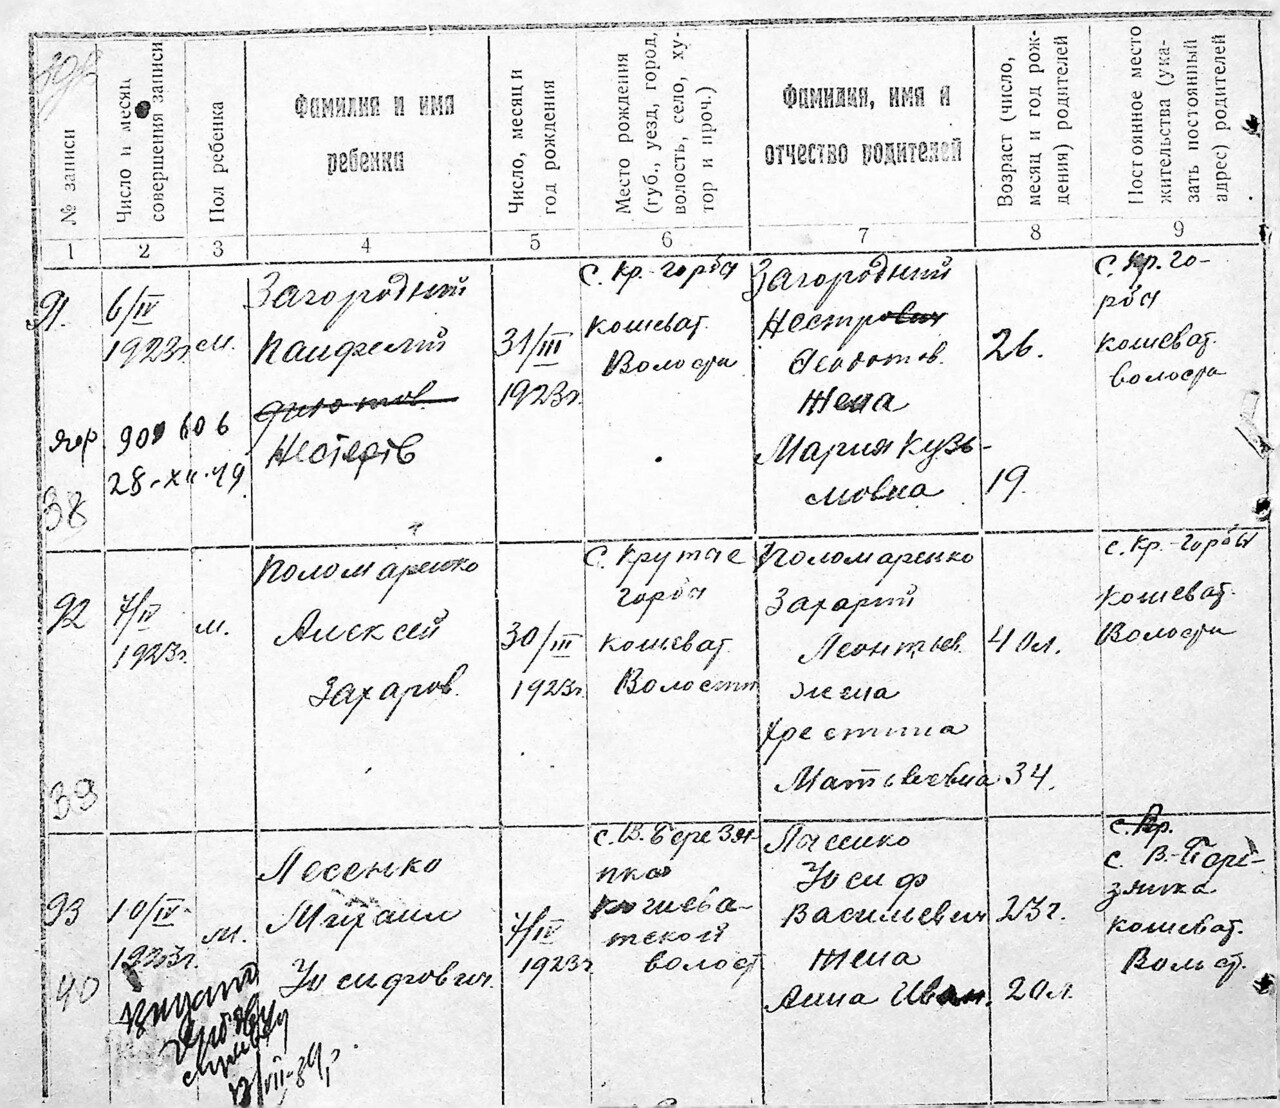 № записи
Число и месяц
совершения записи
Пол ребенка
Фамилия и имя
ребенка
Число, месяц и
год рождения
Место рождения
(губ., уезд, город,
волость, село, ху-
тор и проч.)
Фамилия, имя и
отчество родителей
Возраст (число,
месяц и год рож-
дения) родителей
Постоянное место
жительства (ука-
зать постоянный
адрес) родителей
1 2 3 4 5 6 7 8 9
91.
6/IV
1923г.
м.
Загородний
Панфелий
Нестеров
31/III
1923г.
с. Кр.-горбы
Кошеват.
Волости
Загородний
Нестр
жена
Мария Кузь-
мовна
26.
19.
с. Кр. го-
рбы
кошеват.
волости
909 606
28-XII-49
38
92
7/IV
1923г.
м.
Поломаренко
Алексей
Захаров.
30/III
1923г.
с. Крутые
горбы
Кошеват.
Волости
Поломаренко
Захарий
Леонтьев.
жена
Хрестина
Матвеевна
40л.
34.
с. Кр.-горбы
Кошеват.
Волости
39
93
10/IV
1923г.
м.
Лесенько
Михаил
Иосифович.
7/IV
1923г.
с. В. Березян-
нка
Кошева-
тской
волост
Лысенко
Иосиф
Василиевич
жена
Анна Иван.
23г.
20л.
с. Кр.
с. В.-Бере-
зянка
кошеват.
Вольст.
40